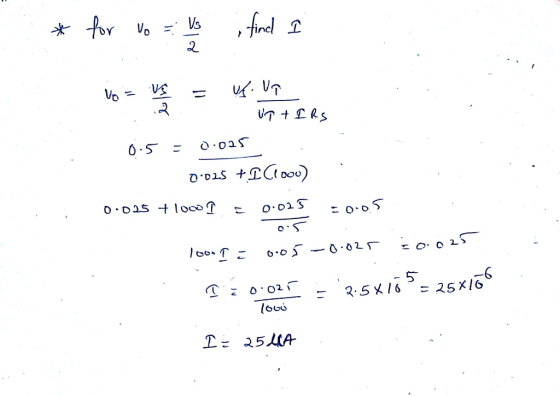 * for vo = vs/2 , find I
vo = vs/2 = vs. VT / VT + I Rs
0.5 = 0.025 / 0.025 + I(1000)
0.025 + 1000I = 0.025 / 0.5 = 0.05
1000I = 0.05 - 0.025 = 0.025
I = 0.025 / 1000 = 2.5 x 10^-5 = 25 x 10^-6
I = 25 μA